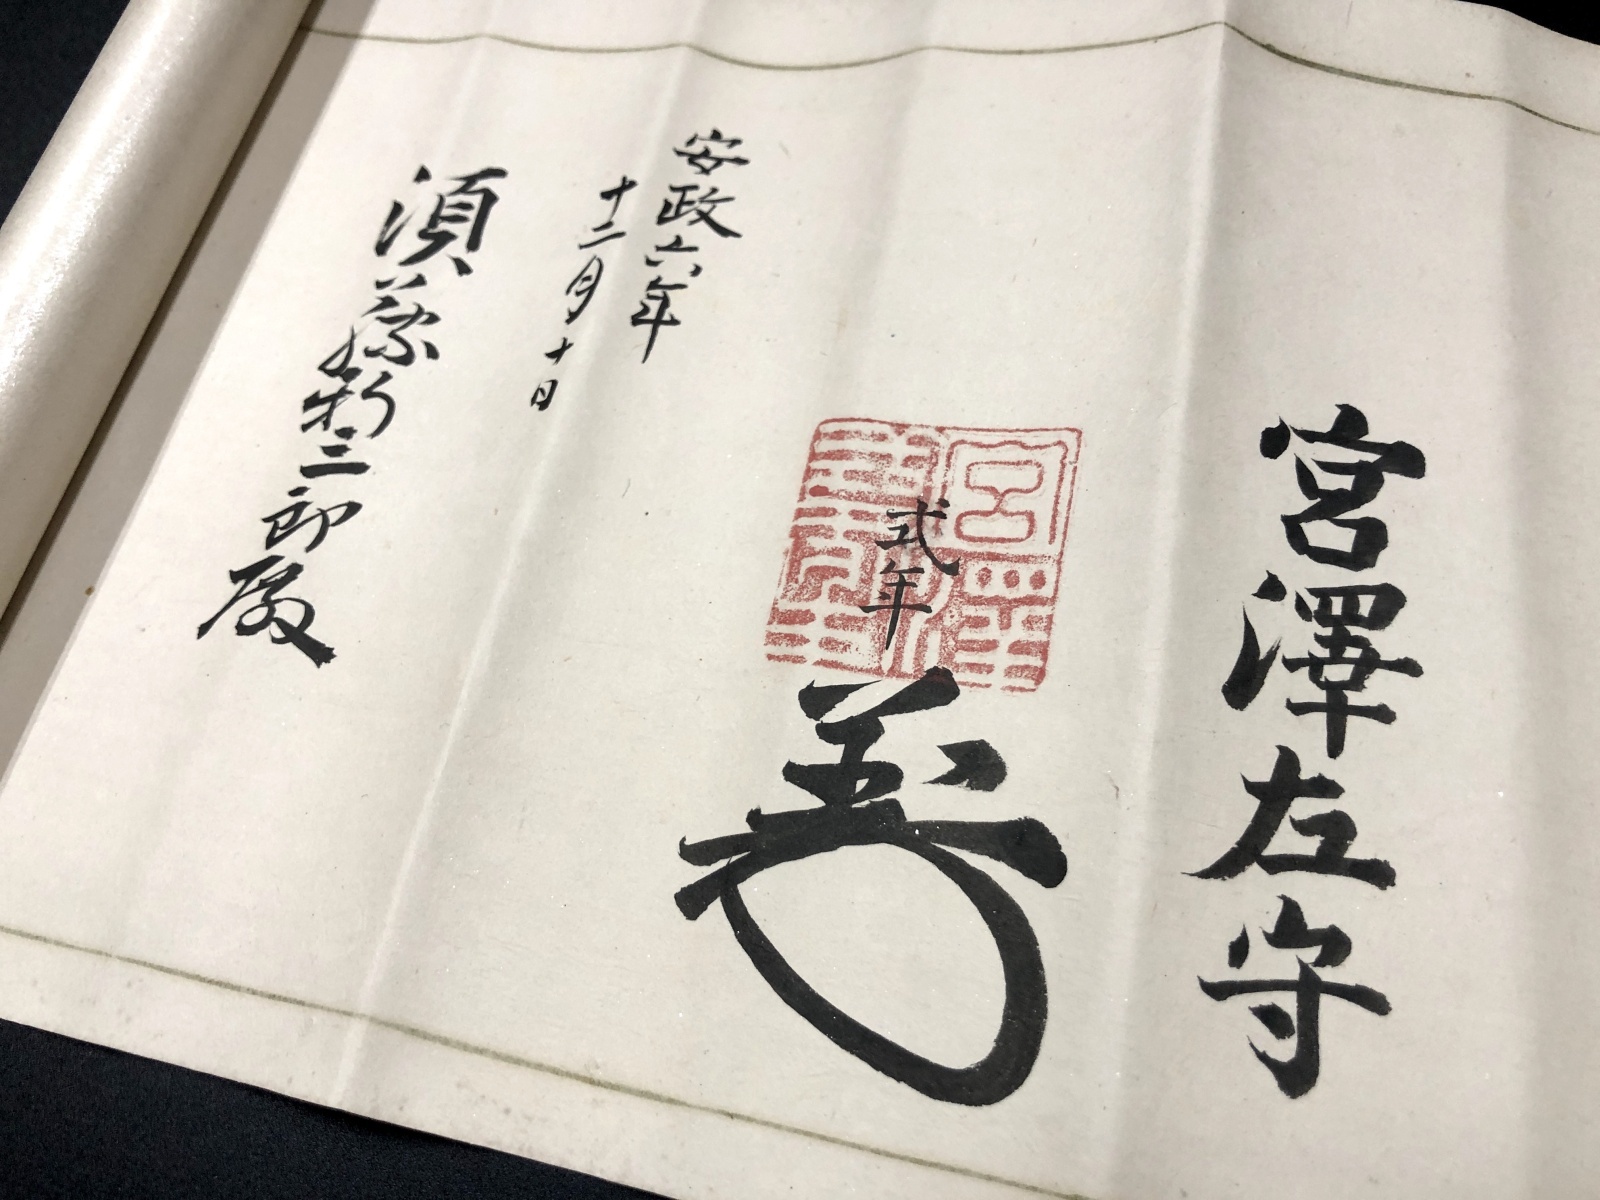 宮澤左守
弐年
安政六年
十二月十日
須藤新三郎殿